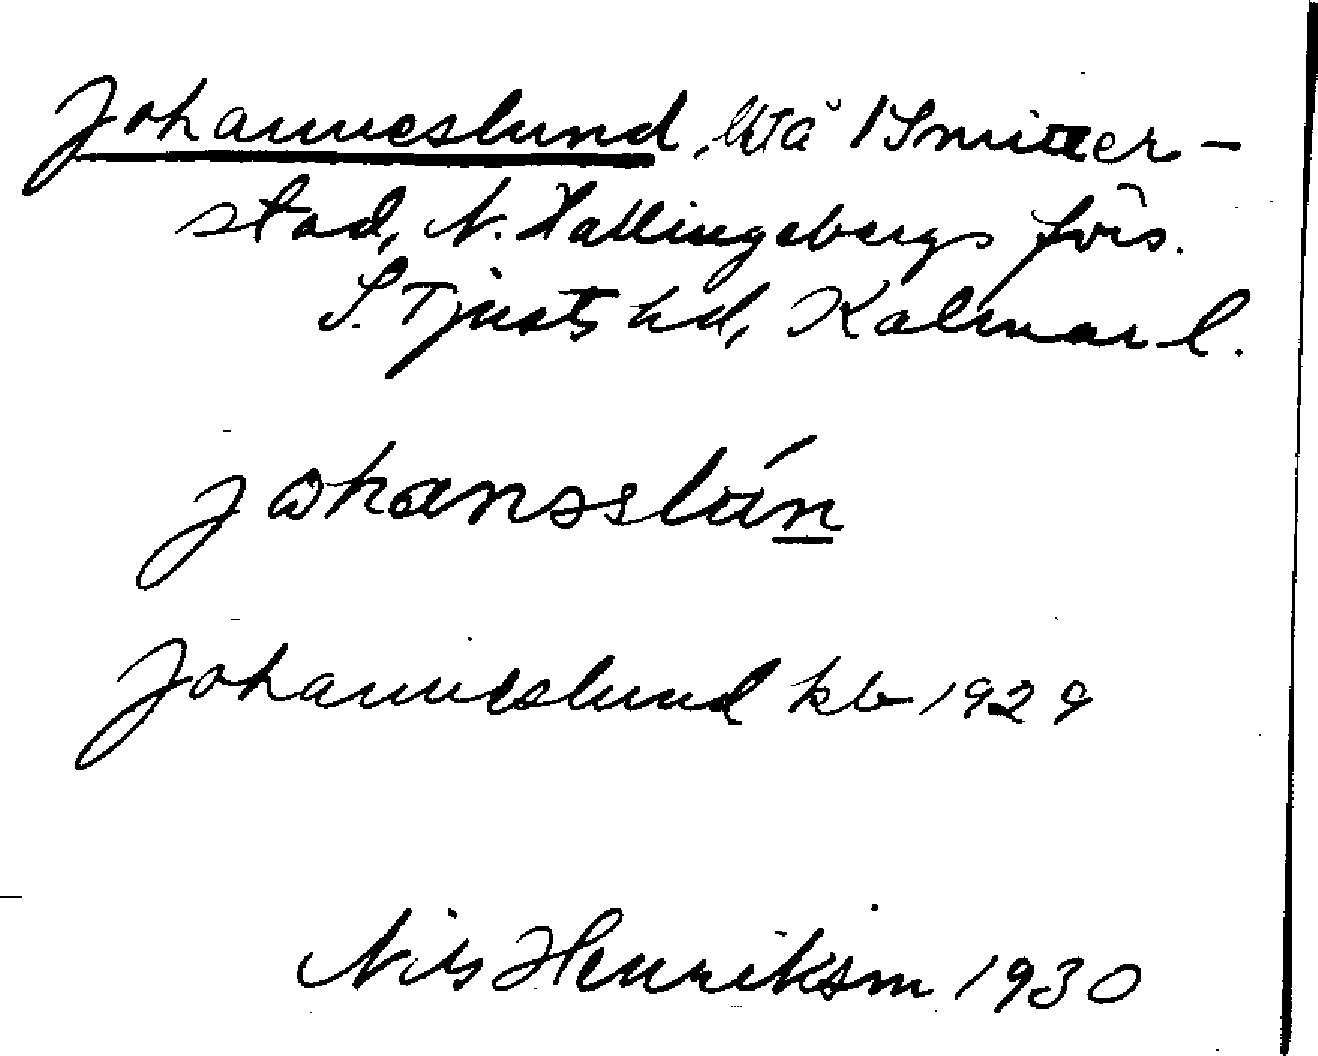 Johanneslund, 
stad, N. Hallingebergs förs.
S. Tjusts hd, Kalmar l.
johansslún
Johanneslund kb 1929
Nils Henrikson 1930